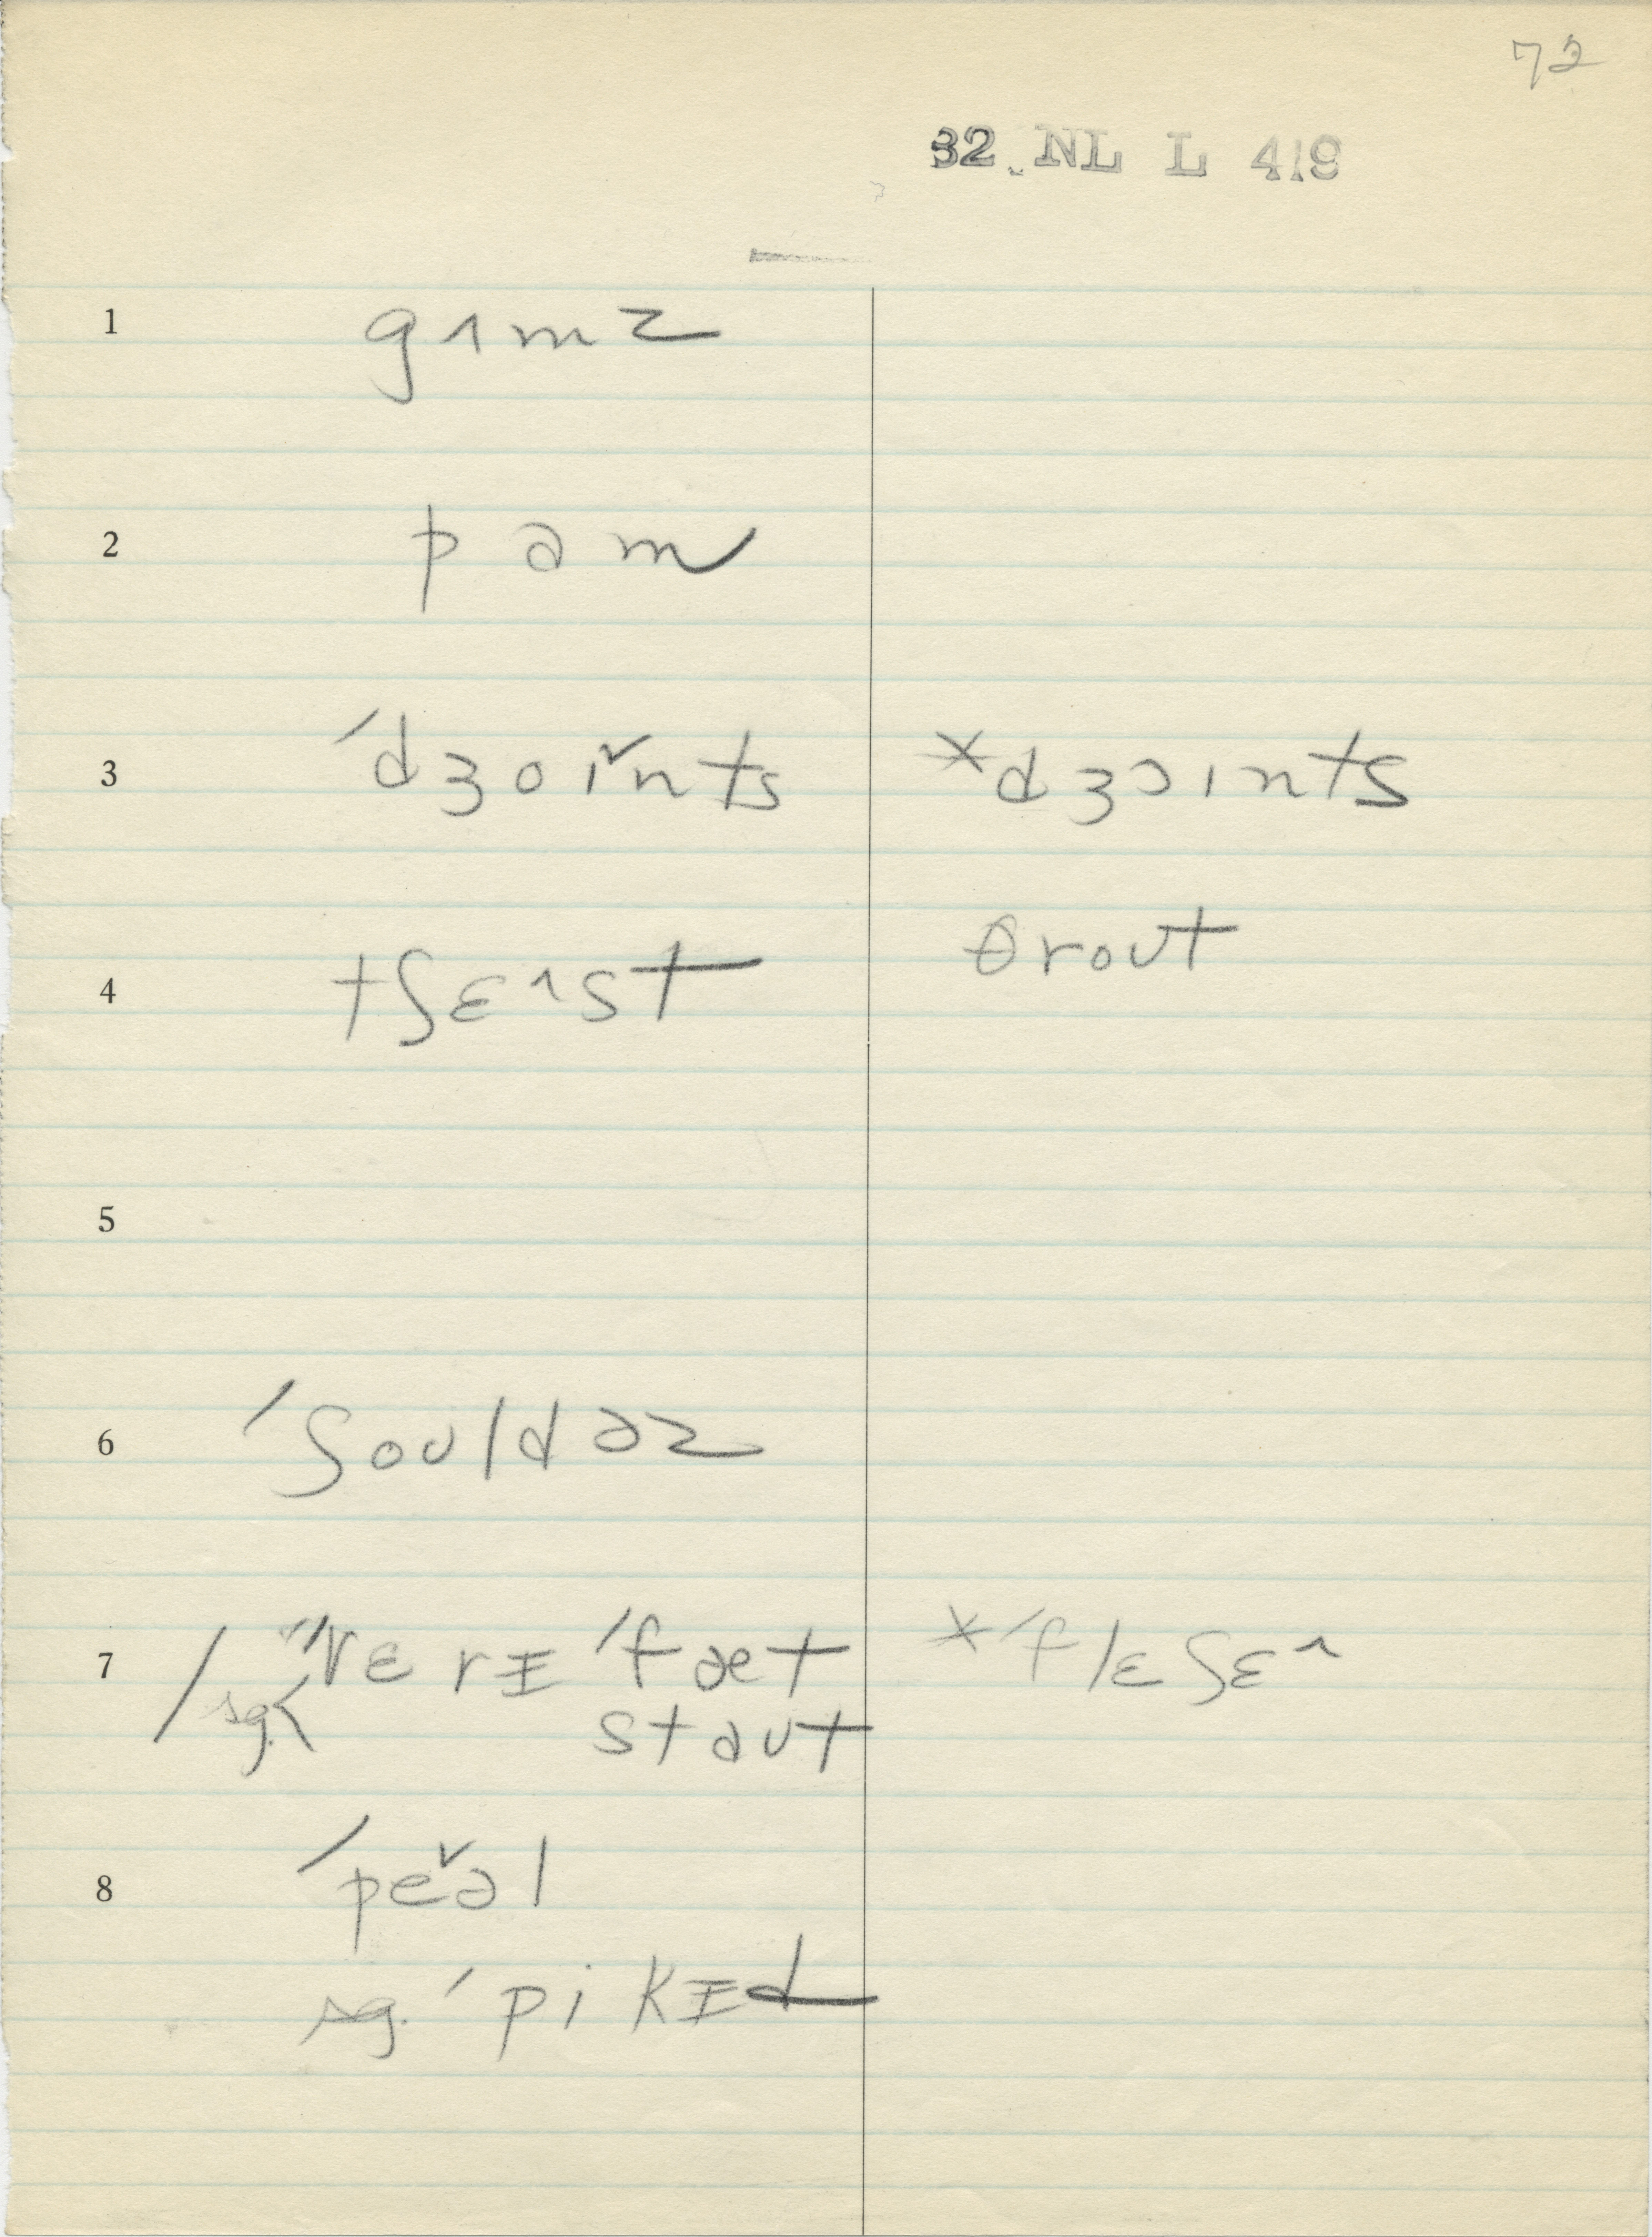 72
32 NL L 419
1 gɿmz
2 pam
3 ˈdʒoɪ̌nts *dʒɔɪnts
4 tʃɛɿst θrout
5
6 ˈʃouldəz
7 / sg. < "vɛrɪ ˈfæt *ˈflɛʃɛɿ
staut
8 ˈpeə̌l
sg. ˈpikɪd